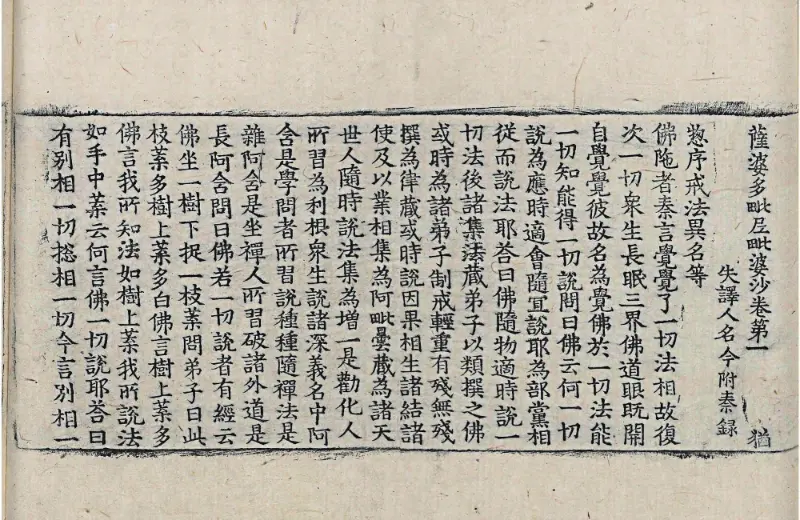 薩婆多毗尼毗婆沙卷第一 猶
失譯人名今附秦録
惣序戒法異名等
佛陁者秦言覺覺了一切法相故復
次一切衆生長眠三界佛道眼旣開
自覺覺彼故名為覺佛於一切法能
一切知能得一切說問曰佛云何一切
說為應時適會隨冝說耶為部黨相
從而說法耶荅曰佛隨物適時說一
切法後諸集法藏弟子以類撰之佛
或時為諸弟子制戒輕重有殘無殘
撰為律藏或時說因果相生諸結諸
使及以業相集為阿毗曇藏為諸天
世人隨時說法集為增一是勸化人
所習為利根衆生說諸深義名中阿
含是學問者所習說種種隨禪法是
雜阿含是坐禪人所習破諸外道是
長阿含問曰佛若一切說者有經云
佛坐一樹下捉一枝葉問弟子曰此
枝葉多樹上葉多白佛言樹上葉多
佛言我所知法如樹上葉我所說法
如手中葉云何言佛一切說耶荅曰
有別相一切惣相一切今言別相一